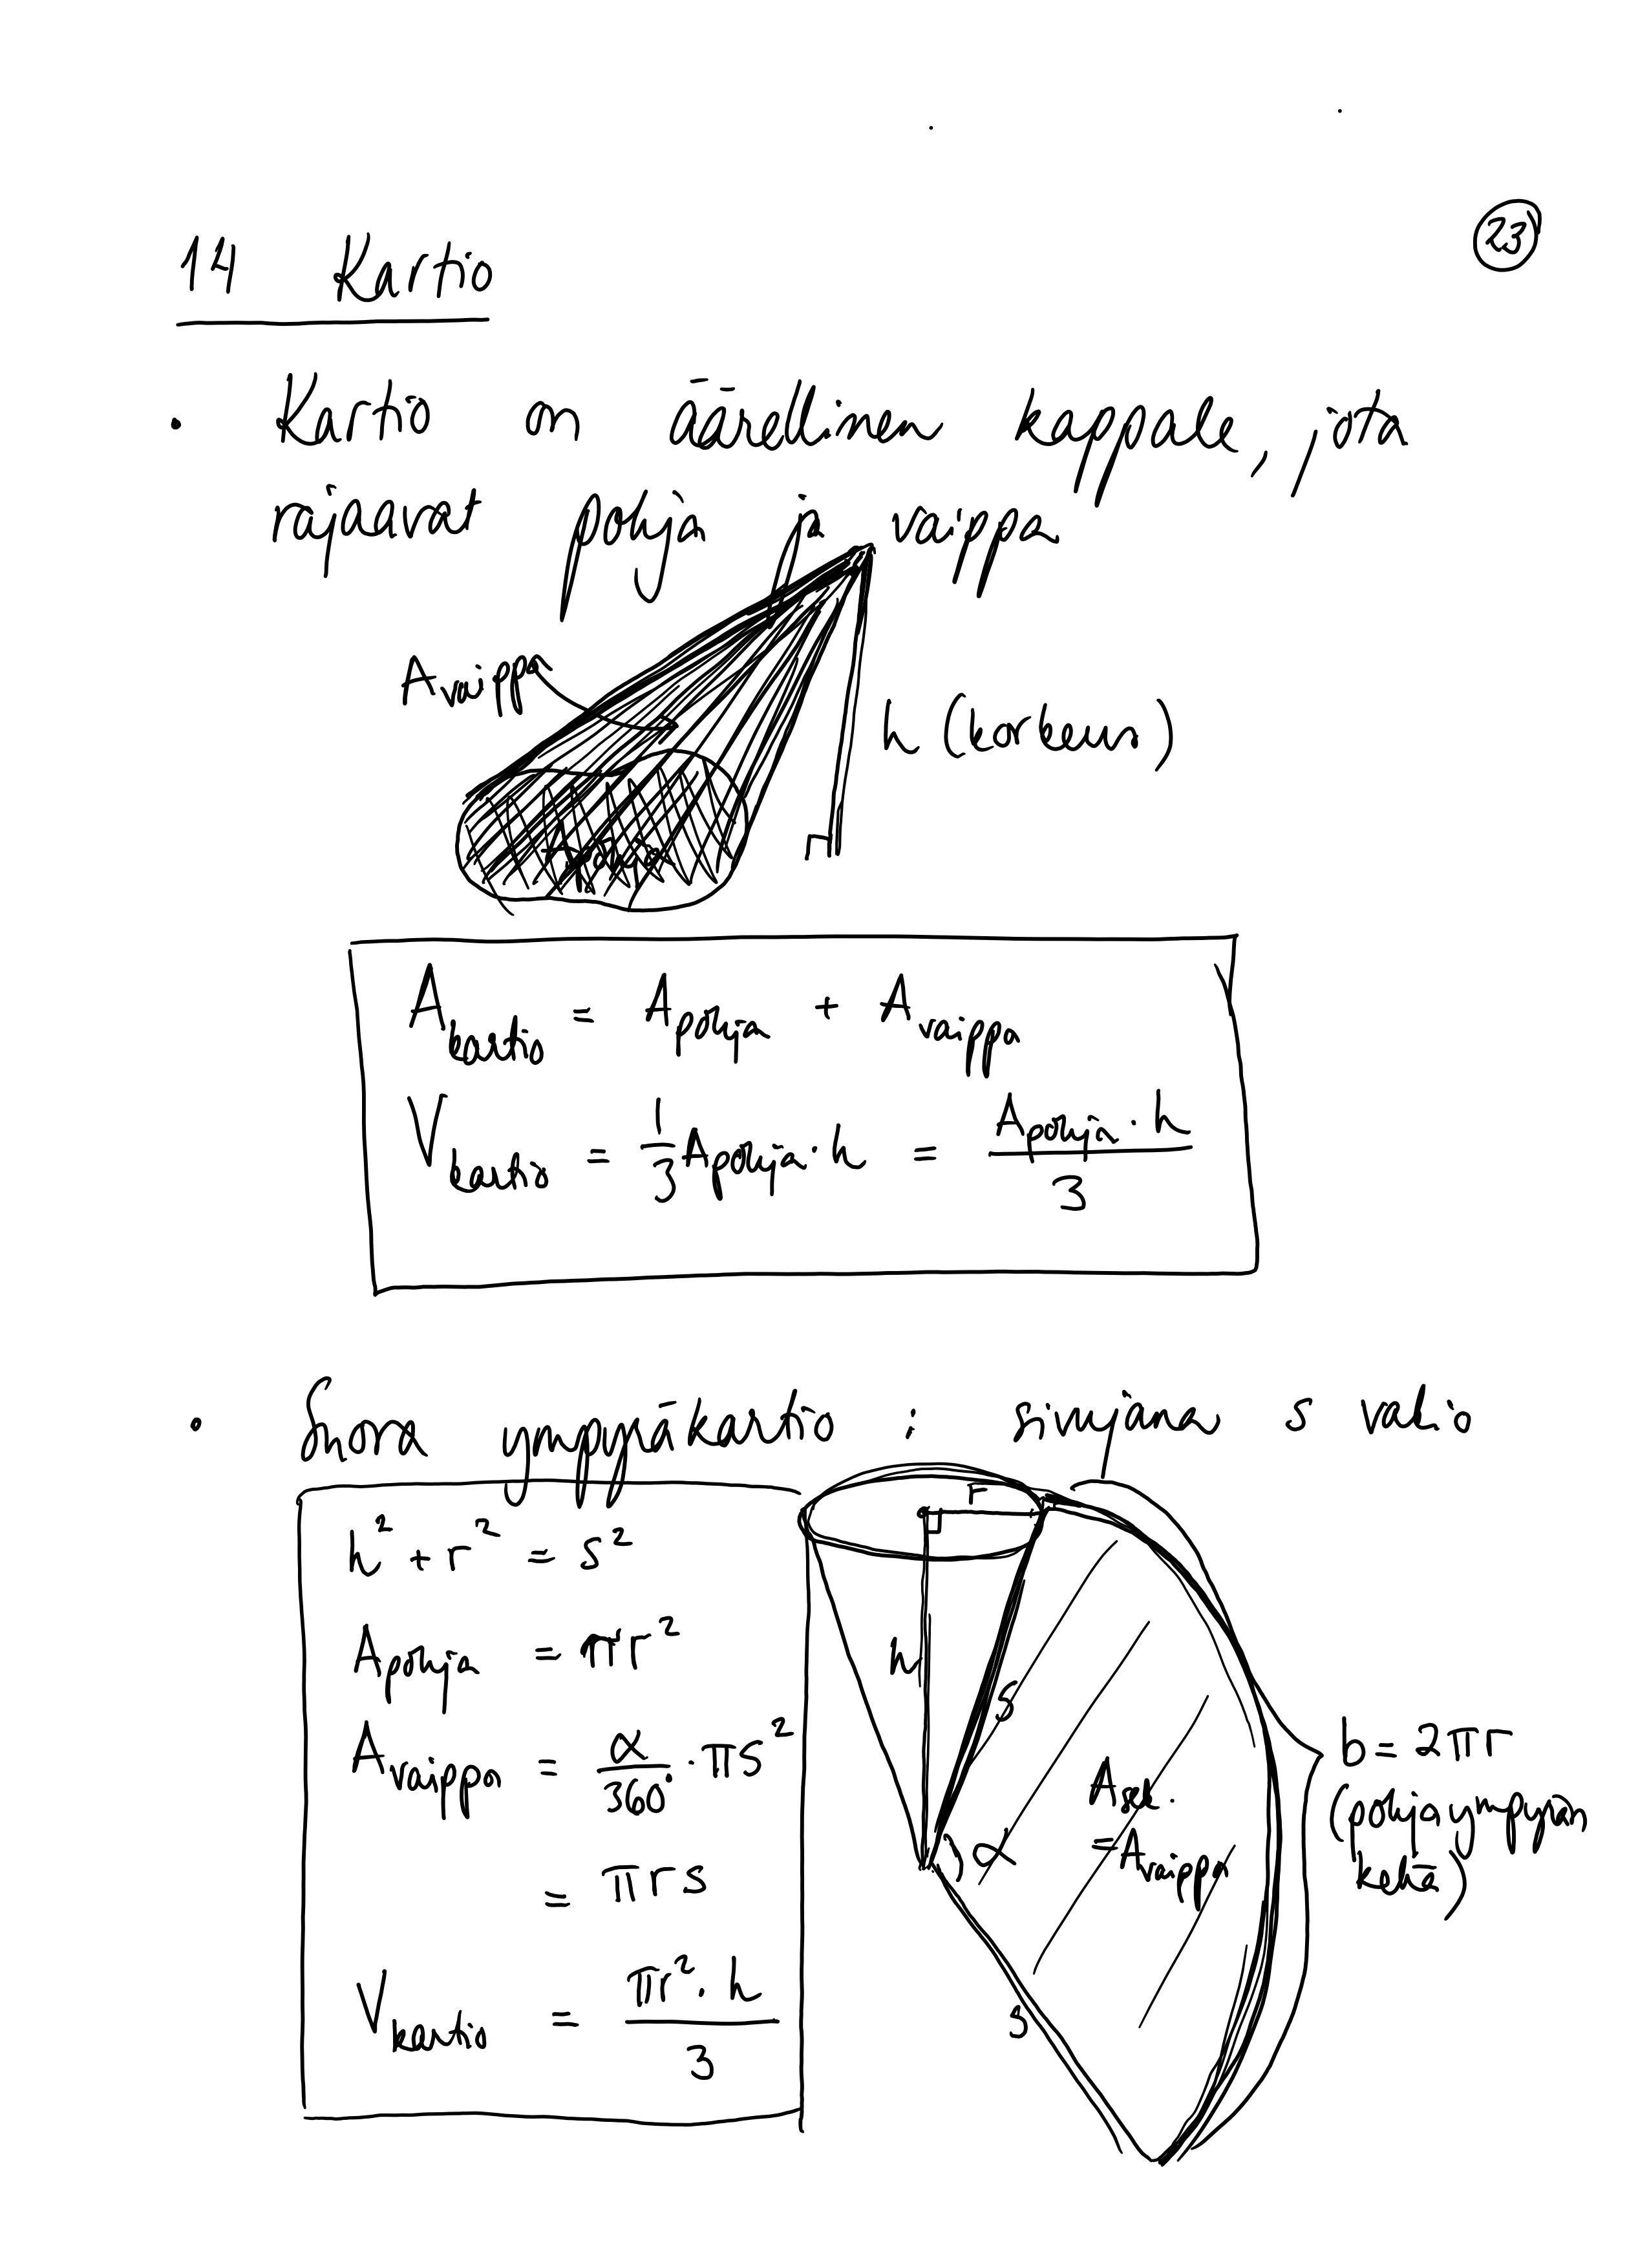 23
14 Kartio
• Kartio on äärellinen kappale, jota
rajaavat pohja ja vaippa
A_vaippa
h (korkeus)
A_pohja
A_kartio = A_pohja + A_vaippa
V_kartio = 1/3 A_pohja · h = A_pohja · h / 3
• Suora ympyräkartio : sivujana s vakio
h² + r² = s²
A_pohja = πr²
A_vaippa = α/360° · πs²
= πrs
V_kartio = πr² · h / 3
r
h
s
α
A_sek.
= A_vaippa
s
b = 2πr
(pohjaympyrän
kehä)